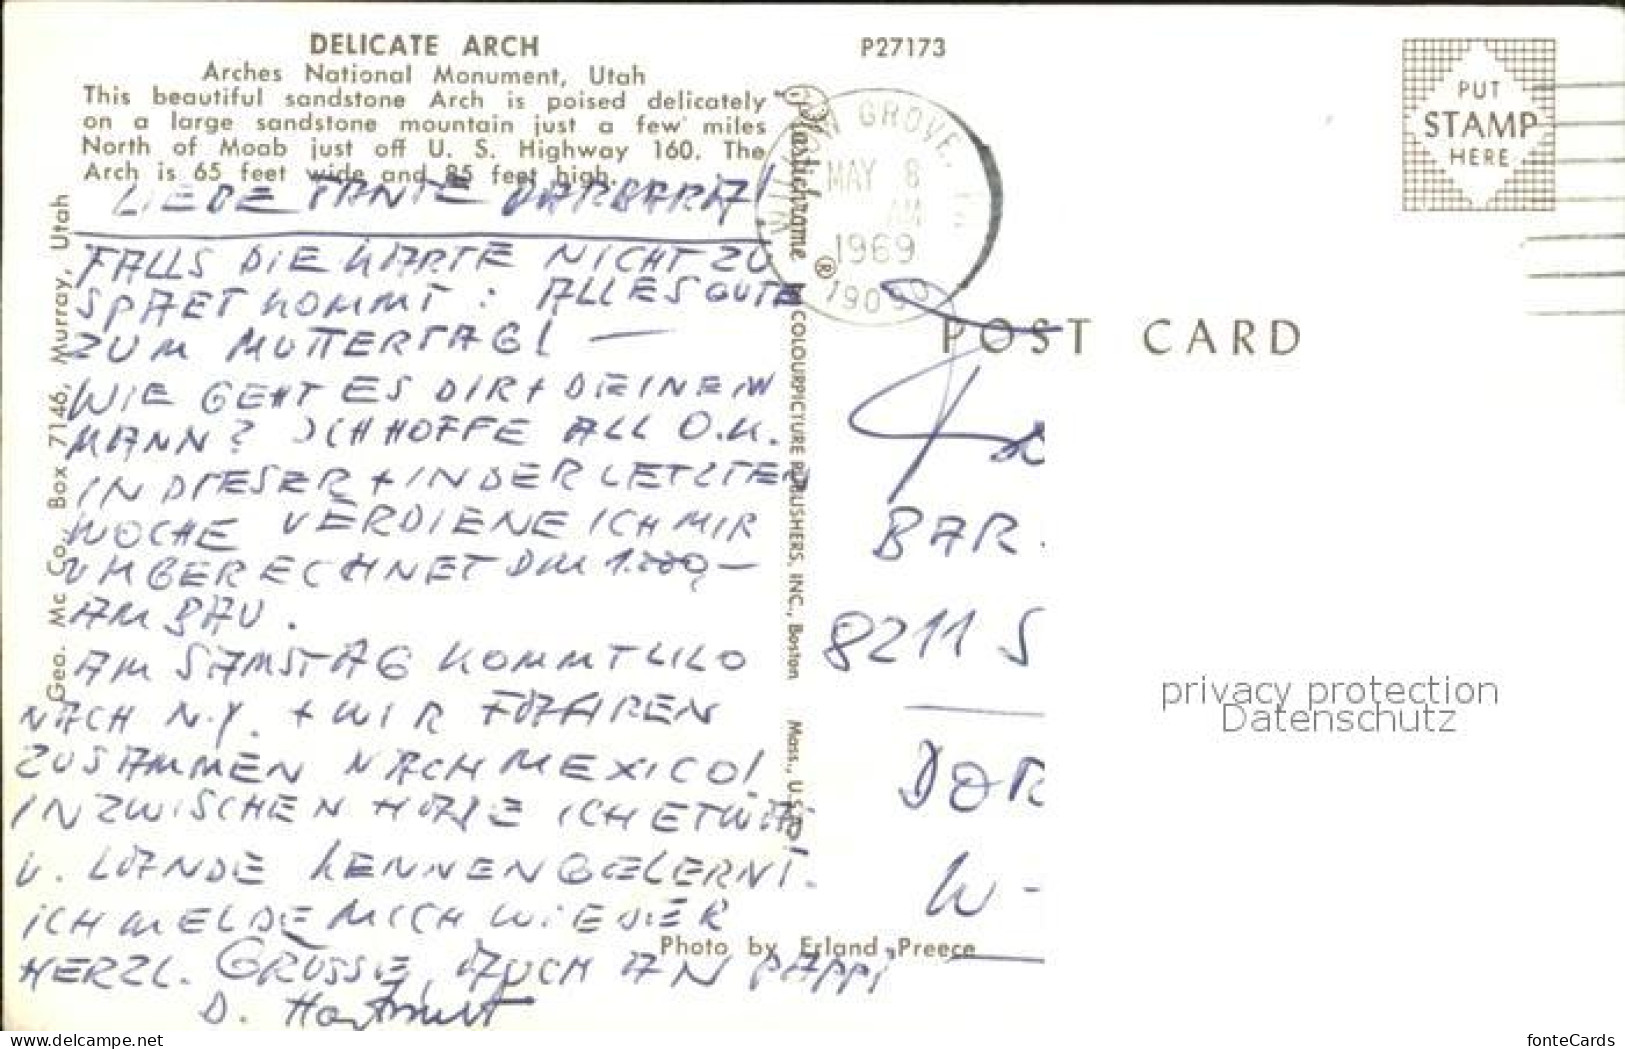 DELICATE ARCH
Arches National Monument, Utah
This beautiful sandstone Arch is poised delicately
on a large sandstone mountain just a few miles
North of Moab just off U. S. Highway 160. The
Arch is 65 feet wide and 85 feet high.
LIEBE TANTE BARBARA!
FALLS DIE KARTE NICHT ZU
SPAET KOMMT: ALLES GUTE
ZUM MUTTERTAG! —
WIE GEHT ES DIR + DEINEM
MANN? ICH HOFFE ALL O.K.
IN DIESER + IN DER LETZTEN
WOCHE VERDIENE ICH MIR
UMGERECHNET DM 1.000,—
AM BAU.
AM SAMSTAG KOMMT LILO
NACH N.Y. + WIR FAHREN
ZUSAMMEN NACH MEXICO!
INZWISCHEN HABE ICH ETWAS
LAND KENNENGELERNT.
ICH MELDE MICH WIEDER
HERZL. GRÜSSE, AUCH AN PAPPI
D. Hartmut
Geo. Mc Co., Box 7146, Murray, Utah
Plastichrome ®
COLOURPICTURE PUBLISHERS, INC., Boston Mass., U.S.A.
P27173
GROVE,
MAY 8
AM
1969
190
PUT
STAMP
HERE
POST CARD
BAR.
8211 S
DOR
W -
Photo by Erland Preece
privacy protection
Datenschutz
www.delcampe.net
fonteCards